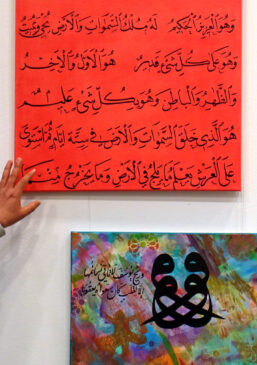 وَهُوَ الْعَزِيزُ الْحَكِيمُ لَهُ مُلْكُ السَّمٰوَاتِ وَالْأَرْضِ يُحْيِي وَيُمِيتُ
وَهُوَ عَلَىٰ كُلِّ شَيْءٍ قَدِيرٌ هُوَ الْأَوَّلُ وَالْآخِرُ
وَالظَّاهِرُ وَالْبَاطِنُ وَهُوَ بِكُلِّ شَيْءٍ عَلِيمٌ
هُوَ الَّذِي خَلَقَ السَّمٰوَاتِ وَالْأَرْضَ فِي سِتَّةِ أَيَّامٍ ثُمَّ اسْتَوَىٰ
عَلَى الْعَرْشِ يَعْلَمُ مَا يَلِجُ فِي الْأَرْضِ وَمَا يَخْرُجُ مِنْهَا